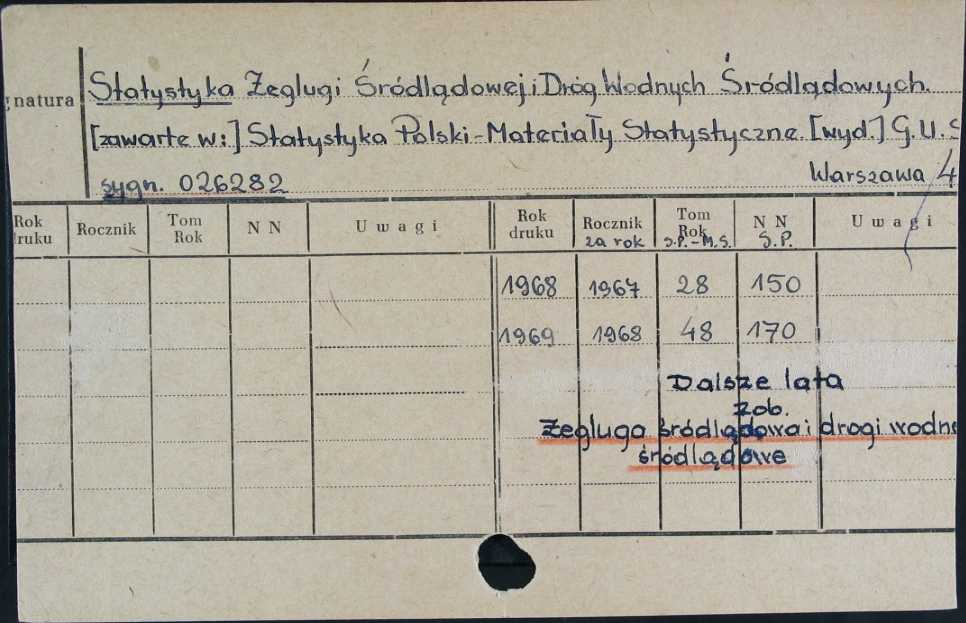 gnatura Statystyka Żeglugi Śródlądowej i Dróg Wodnych Śródlądowych.
[zawarte w:] Statystyka Polski-Materiały Statystyczne. [wyd.] G.U.S
sygn. 026282 Warszawa 4
Rok druku Rocznik Tom Rok N N Uwagi Rok druku Rocznik za rok Tom Rok S.P.-M.S. N N S.P. Uwagi
1968 1967 28 150
1969 1968 48 170
Dalsze lata
zob.
Żegluga śródlądowa i drogi wodne
śródlądowe